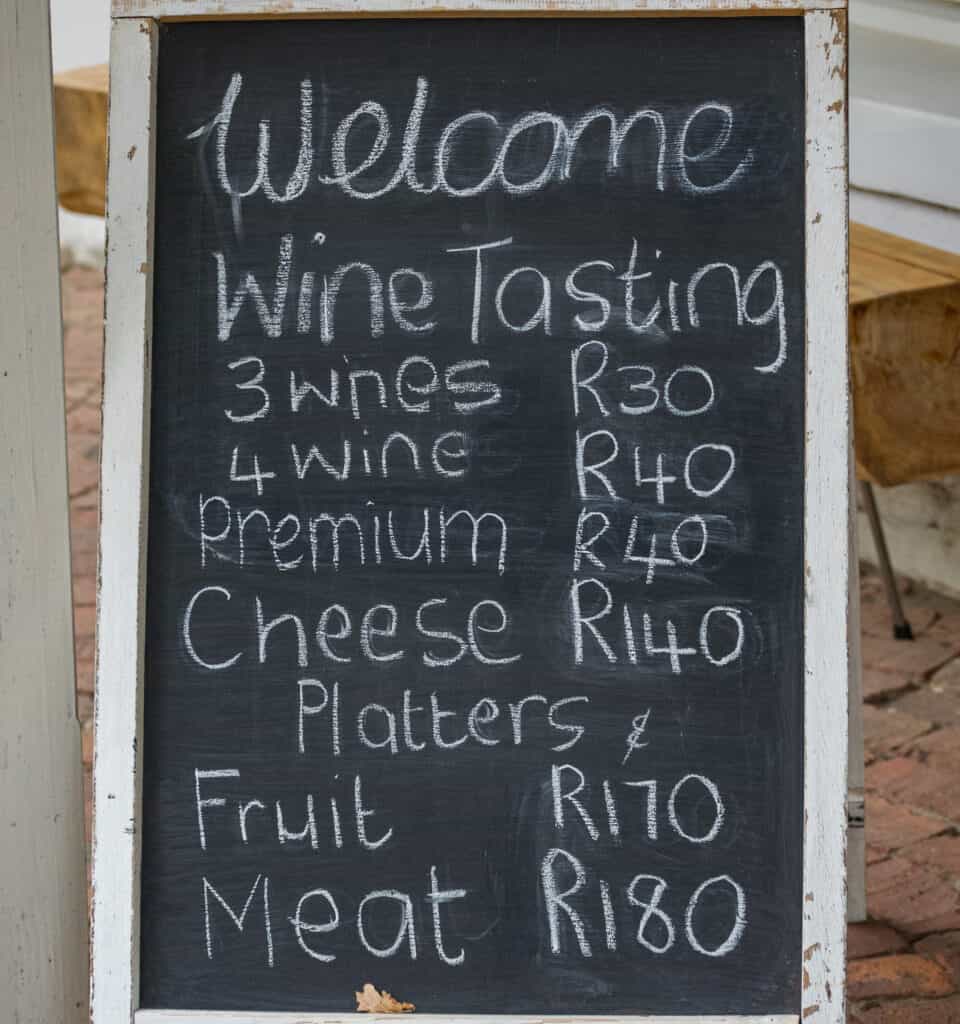 Welcome
Wine Tasting
3 wnes R30
4 wine R40
Premium R40
Cheese R140
Platters &
Fruit R170
Meat R180